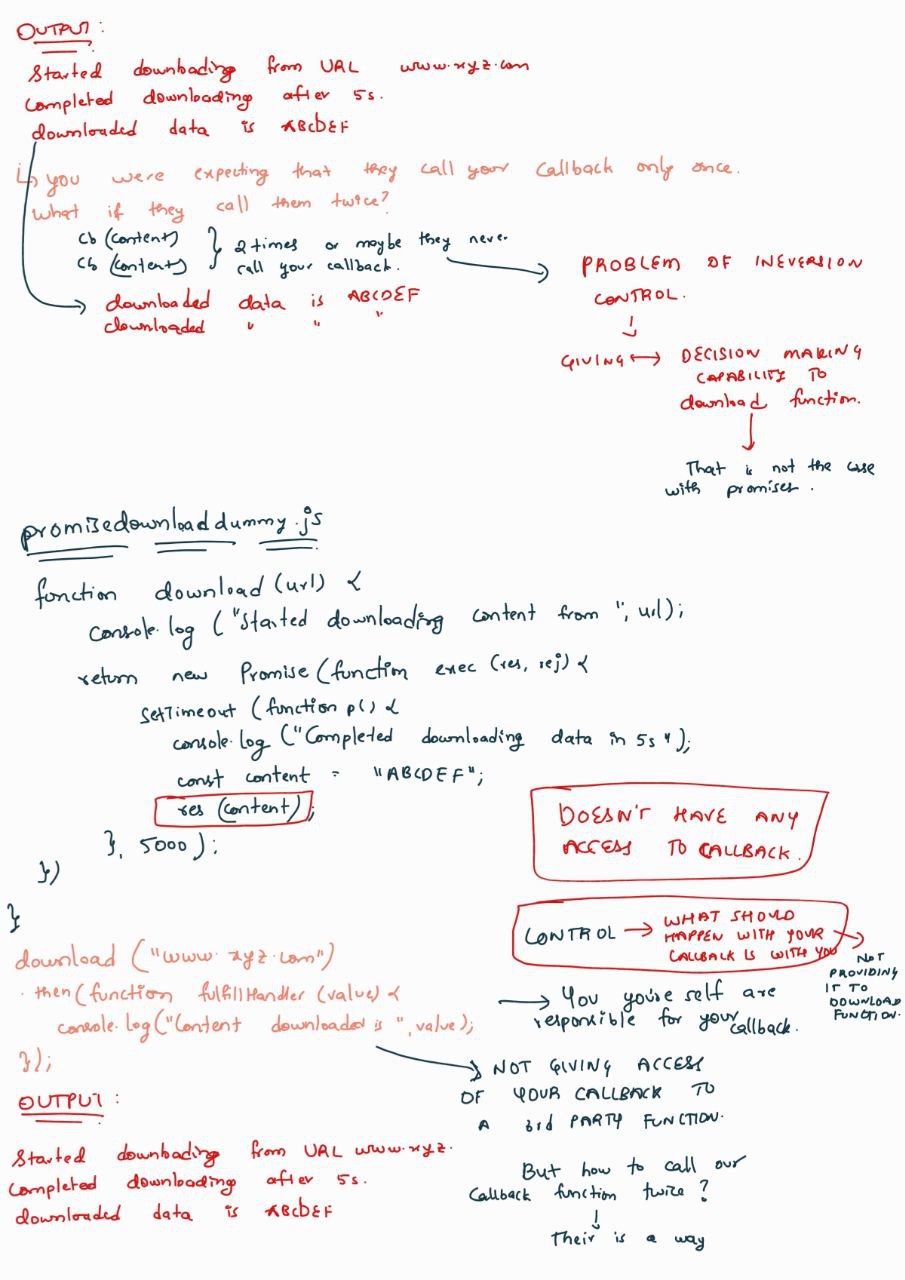 OUTPUT :
Started downloading from URL www.xyz.com
Completed downloading after 5s.
downloaded data is ABCDEF
↳ you were expecting that they call your callback only once.
What if they call them twice?
Cb (content)
Cb (content)
} 2 times or maybe they never
call your callback.
downloaded data is ABCDEF
downloaded " " "
PROBLEM OF INEVERSION
CONTROL.
↓
GIVING ↔ DECISION MAKING
CAPABILITY TO
download function.
↓
That is not the case
with promises.
promisedownloaddummy.js
function download (url) {
console.log ("Started downloading content from ", url);
return new Promise (function exec (res, rej) {
setTimeout (function p() {
console.log ("Completed downloading data in 5s");
const content = "ABCDEF";
res (content);
}, 5000 );
})
}
DOESN'T HAVE ANY
ACCESS TO CALLBACK.
CONTROL → WHAT SHOULD
HAPPEN WITH YOUR
CALLBACK IS WITH YOU
→ NOT
PROVIDING
IT TO
DOWNLOAD
FUNCTION.
download ("www.xyz.com")
.then (function fulfillHandler (value) {
console.log ("Content downloaded is ", value);
});
→ You youre self are
responsible for your callback.
→ NOT GIVING ACCESS
OF YOUR CALLBACK TO
A 3rd PARTY FUNCTION.
But how to call our
Callback function twice ?
↓
Their is a way
OUTPUT :
Started downloading from URL www.xyz.
Completed downloading after 5s.
downloaded data is ABCDEF